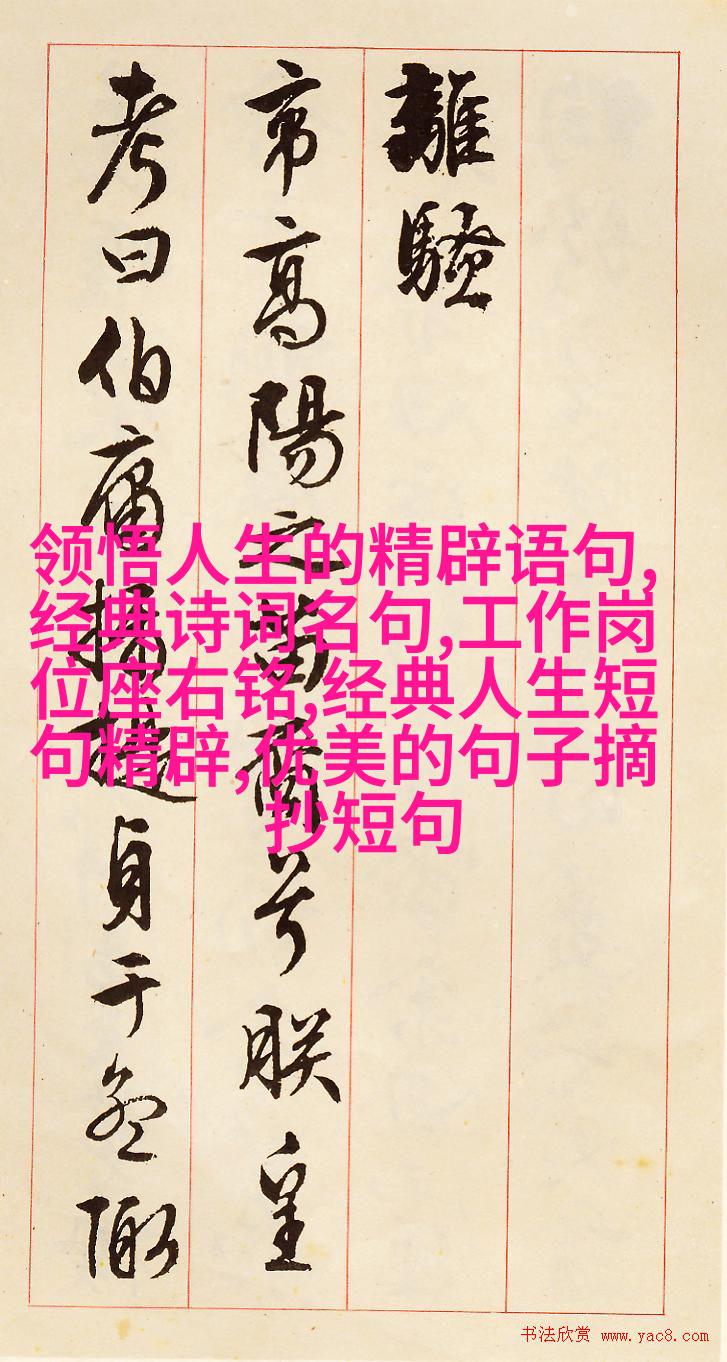 離騷
帝高陽之苗裔兮朕皇
考曰伯庸攝提貞于孟陬
领悟人生的精辟语句,
经典诗词名句,工作岗
位座右铭,经典人生短
句精辟,优美的句子摘
抄短句
书法欣赏 www.yac8.com